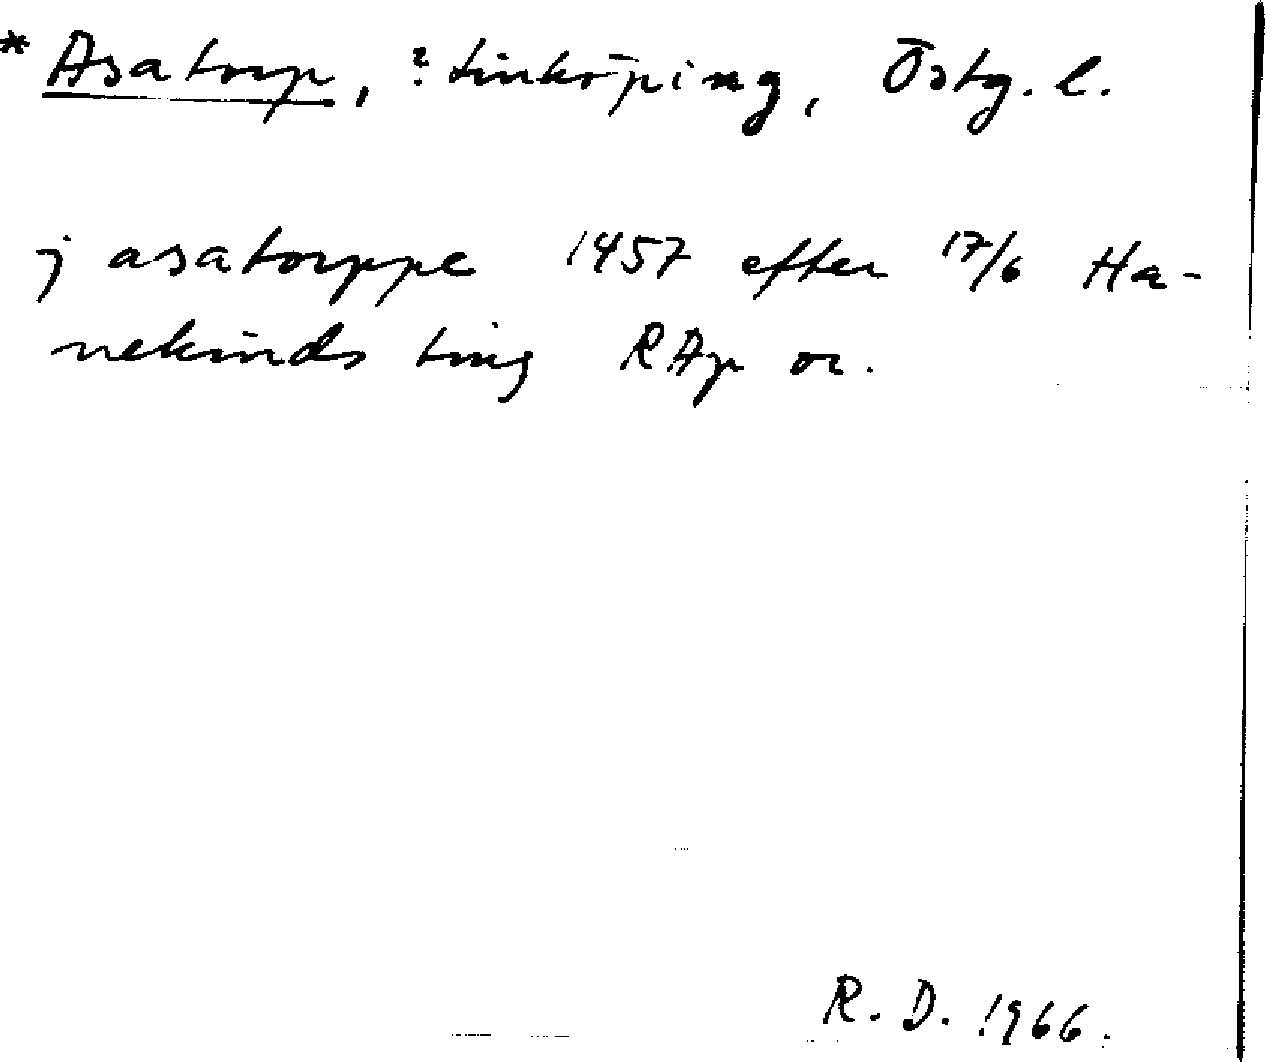 * Asatorp, ? Linköping, Östg. l.
j asatorppe 1457 efter 17/6 Ha-
nekinds ting RAp or.
R. D. 1966.